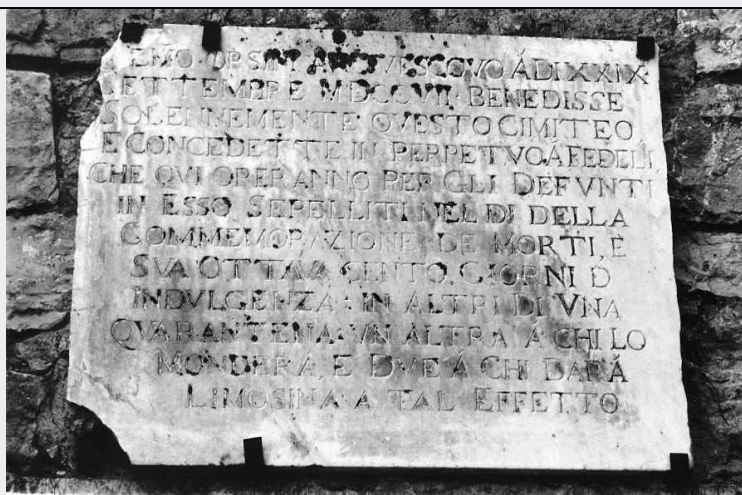 EMO ORSINI ARCIVESCOVO ÁDI XXIX
SETTEMBRE MDCCVII BENEDISSE
SOLENNEMENTE QVESTO CIMITEO
E CONCEDETTE IN PERPETVO Á FEDELI,
CHE QVI OPERANNO PER GLI DEFVNTI
IN ESSO SEPELLITI NEL DI DELLA
COMMEMORAZIONE DE MORTI, E
SVA OTTAVA CENTO GIORNI D
INDVLGENZA: IN ALTRI DI VNA
QVARANTENA: VN ALTRA Á CHI LO
MONDERÁ, E DVE Á CHI DARÁ
LIMOSINA A TAL EFFETTO